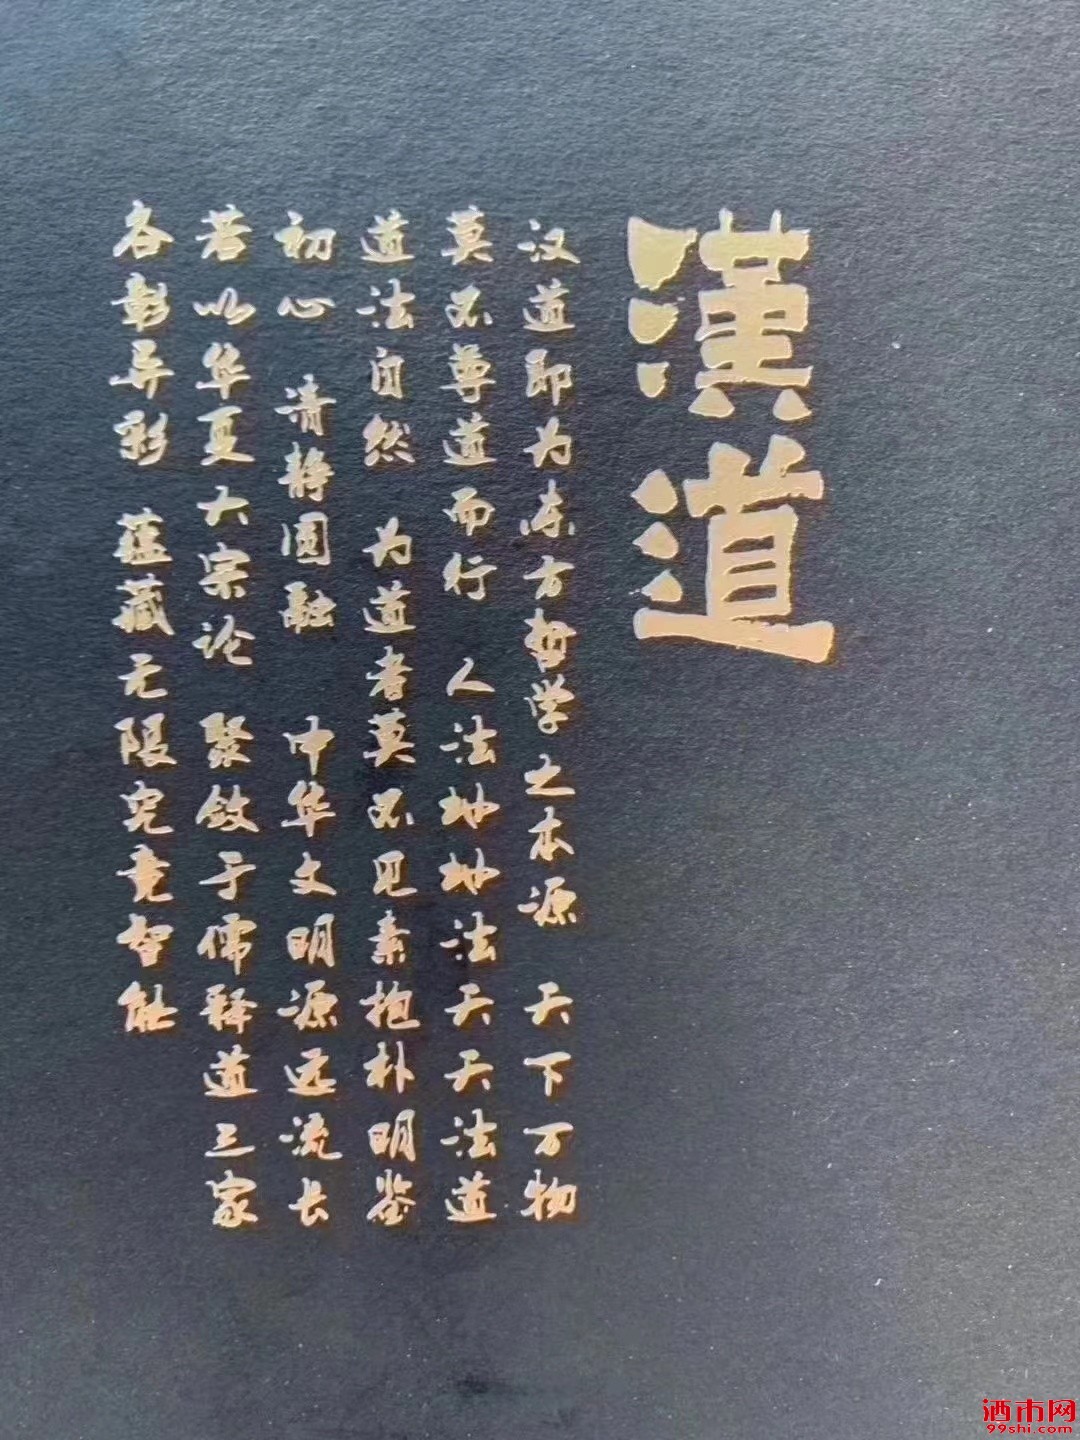 漢道
汉道即为东方哲学之本源 天下万物
莫不尊道而行 人法地地法天天法道
道法自然 为道者莫不见素抱朴明鉴
初心 清静圆融 中华文明源远流长
若以华夏大宗论 聚敛于儒释道三家
各彰异彩 蕴藏无限究竟智能
酒市网
99shi.com